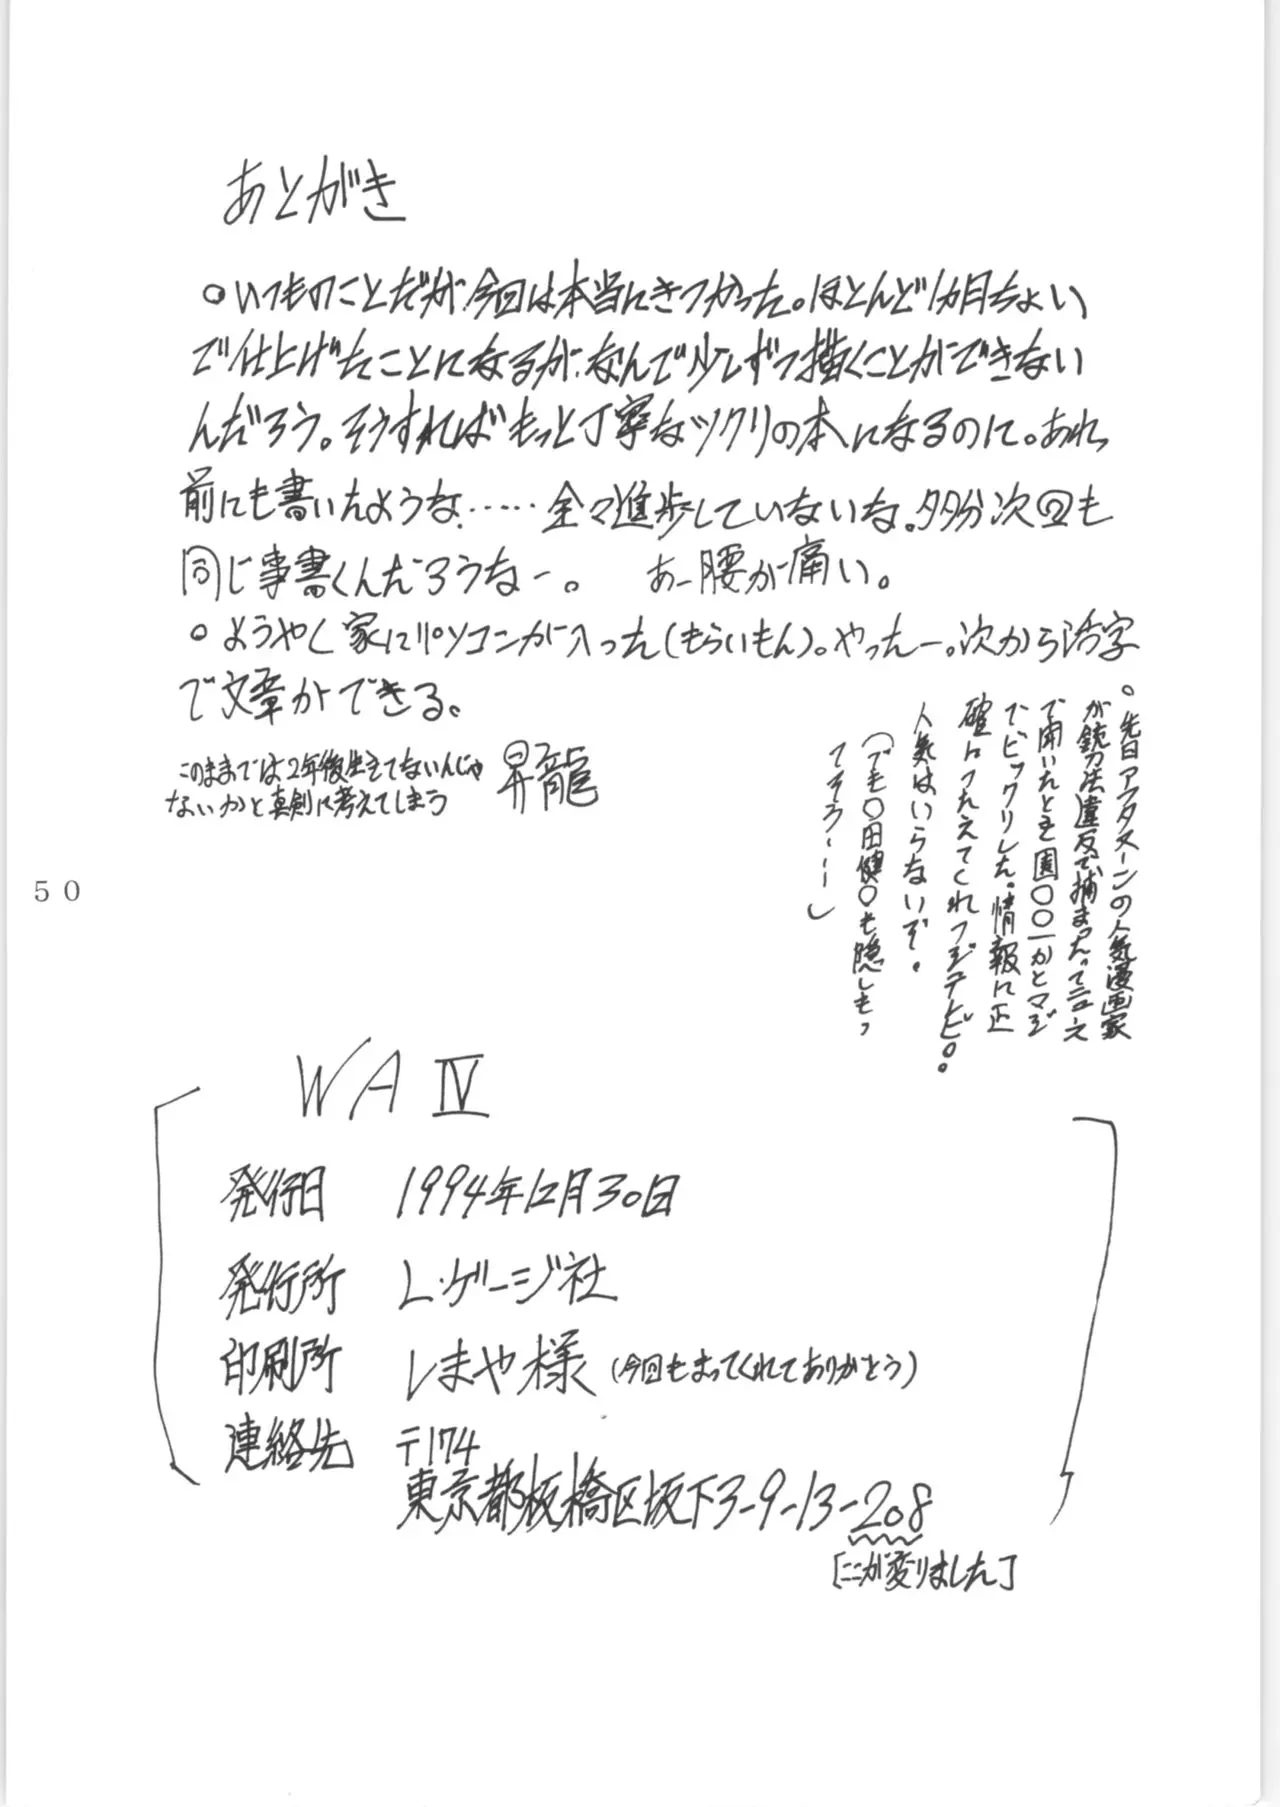 あとがき
○いつものことだが、今回は本当にきつかった。ほとんど1カ月ちょい
で仕上げたことになるが、なんで少しずつ描くことができない
んだろう。そうすればもっと丁寧なツクリの本になるのに。あれ
前にも書いたような……全々進歩していないな。多分次回も
同じ事書くんだろうなー。 あー腰が痛い。
○ようやく家にパソコンが入った(もらいもん)。やったー。次から活字
で文章ができる。
このままでは2年後生きてないんじゃ
ないかと真剣に考えてしまう
昇龍
○先日アフタヌーンの人気漫画家
が銃刀法違反で捕まったってニュース
で聞いたとき園○○一かとマジ
で、ビックリした。情報は正
確につたえてくれフジテレビ。。
人気はいらないぞ。
(デモ○田健○も隠しもっ
てそう……)
50
WA Ⅳ
発行日 1994年12月30日
発行所 L・ゲージ社
印刷所 しまや様(今回もまってくれてありがとう)
連絡先 〒174
東京都板橋区坂下3-9-13-208
[ここが変りました]